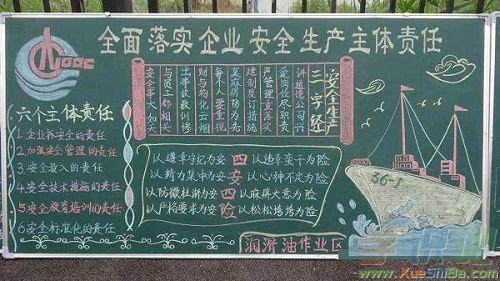 CNOOC
全面落实企业安全生产主体责任
六个主体责任
1企业补安全的责任
2加强安全管理的责任
3安全投入的责任
4安全技术措施的责任
5安全教育培训的责任
6安全标准化的责任
安全生产
三字经
讲道德公司兴
爱岗位尽职责
严管理重落实
建制度订措施
莫放骋防为先
每个人要重视
财与物化云烟
出事故教训惨
与员工都相关
安全事大如天
四安四险
以遵章守纪为安 以违章蛮干为险
以精力集中为安 以心神不定为险
以防微杜渐为安 以麻痹大意为险
以严格要求为安 以松松垮垮为险
36-1
润滑油作业区
www.XueShiBa.com